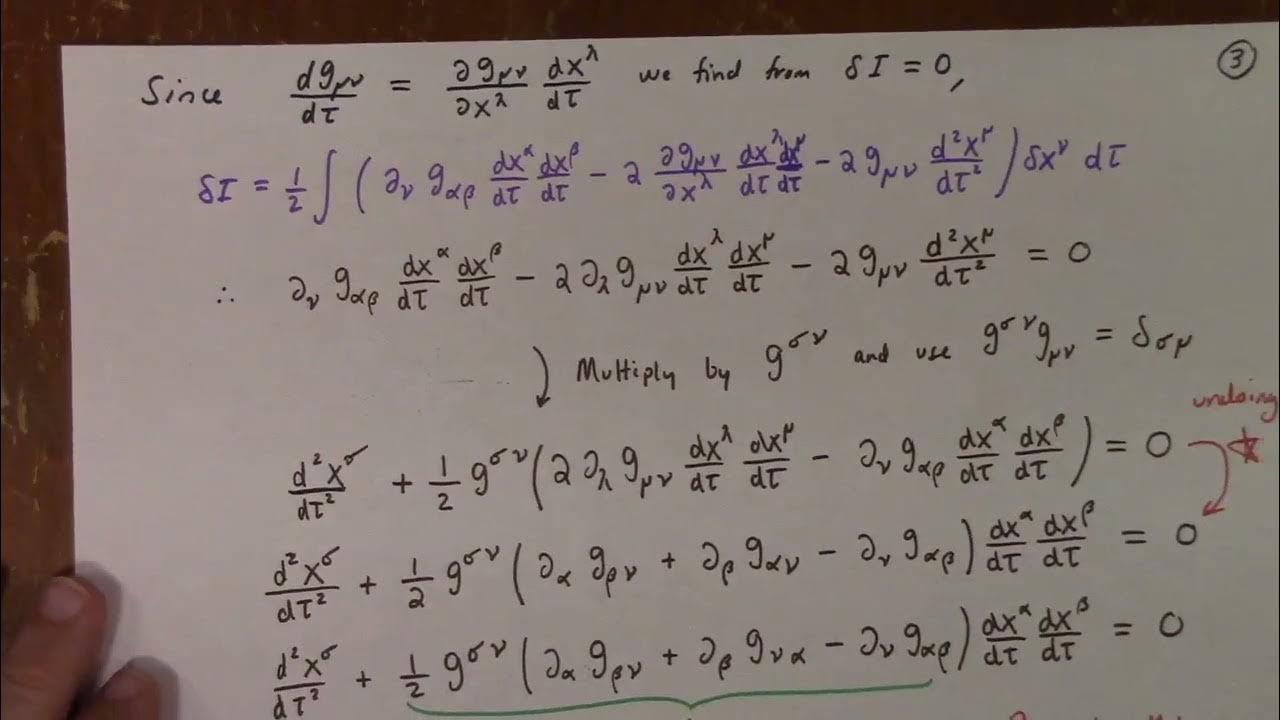 ③
Since dg_μν/dτ = ∂g_μν/∂x^λ dx^λ/dτ we find from δI = 0,
δI = 1/2 ∫ ( ∂_ν g_αβ dx^α/dτ dx^β/dτ − 2 ∂g_μν/∂x^λ dx^λ/dτ dx^μ/dτ − 2 g_μν d²x^μ/dτ² ) δx^ν dτ
∴ ∂_ν g_αβ dx^α/dτ dx^β/dτ − 2 ∂_λ g_μν dx^λ/dτ dx^μ/dτ − 2 g_μν d²x^μ/dτ² = 0
Multiply by g^σν and use g^σν g_μν = δ_σμ
undoing
d²x^σ/dτ² + 1/2 g^σν ( 2 ∂_λ g_μν dx^λ/dτ dx^μ/dτ − ∂_ν g_αβ dx^α/dτ dx^β/dτ ) = 0 ☆
d²x^σ/dτ² + 1/2 g^σν ( ∂_α g_βν + ∂_β g_αν − ∂_ν g_αβ ) dx^α/dτ dx^β/dτ = 0
d²x^σ/dτ² + 1/2 g^σν ( ∂_α g_βν + ∂_β g_να − ∂_ν g_αβ ) dx^α/dτ dx^β/dτ = 0